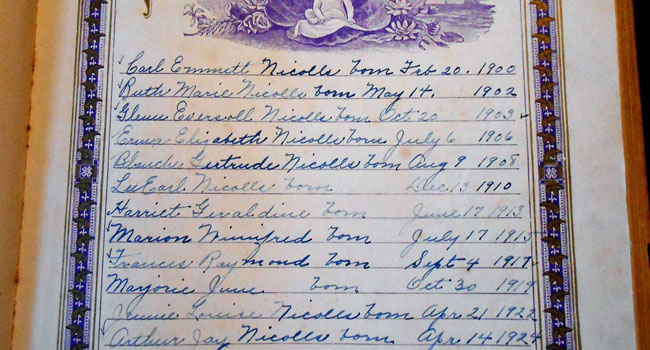 Carl Emmett Nicolls born Feb 20. 1900
Ruth Marie Nicolls born May 14. 1902
Glenn Eversoll Nicolls born Oct 20 1903.
Erma Elizabeth Nicolls born July 6 1906
Blanch Gertrude Nicolls born Aug 9 1908
Lee Earl Nicolls born Dec. 13 1910
Harriet Geraldine born June 17 1913
Marion Winifred born July 17 1915
Frances Raymond born Sept 4 1917
Marjorie June born Oct 30 1919
Louise Nicolls born Apr 21 1922
Arthur Jay Nicolls born Apr 14 1924